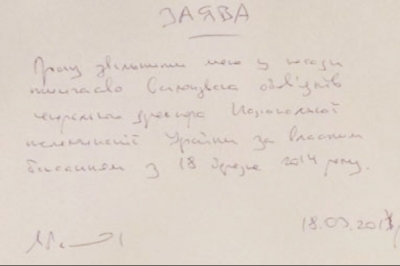 ЗАЯВА
Прошу звільнити мене з посади
тимчасово виконувача обов'язків
генерального директора Національної
телекомпанії України за власним
бажанням з 18 березня 2014 року.
18.03.2014